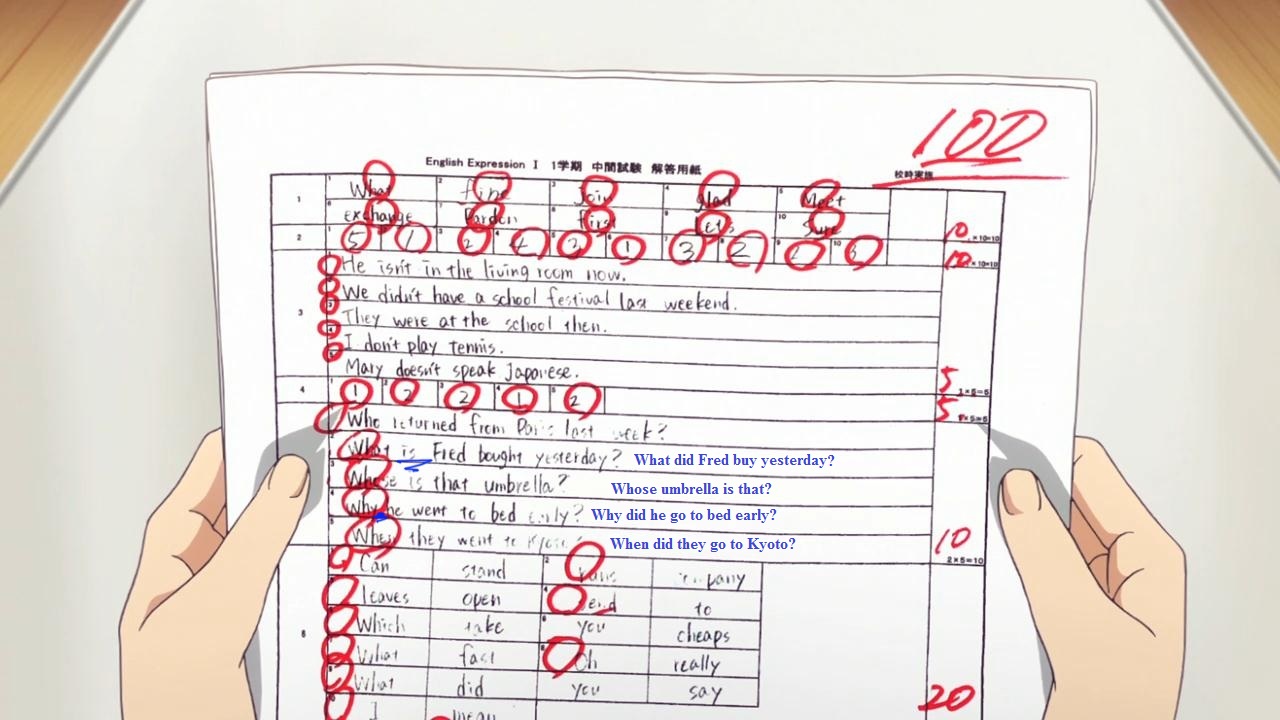 100
English Expression I 1学期 中間試験 解答用紙
校時実施
1 What fine Join glad Meet
exchange Pardon first Let's Sure 10 ×10=10
2 5 1 2 4 3 1 3 2 10 ×10=10
He isn't in the living room now.
We didn't have a school festival last weekend.
3 They were at the school then.
I don't play tennis.
Mary doesn't speak Japanese. 5 1×5=5
4 1 2 2 1 2 5 1×5=5
Who returned from Paris last week?
What is Fred bought yesterday? What did Fred buy yesterday?
Whose is that umbrella? Whose umbrella is that?
Why he went to bed early? Why did he go to bed early?
When they went to Kyoto? When did they go to Kyoto? 10 2×5=10
Can stand
leaves open to
Which take you cheaps
6 What fast Oh really
What did you say 20
I mean